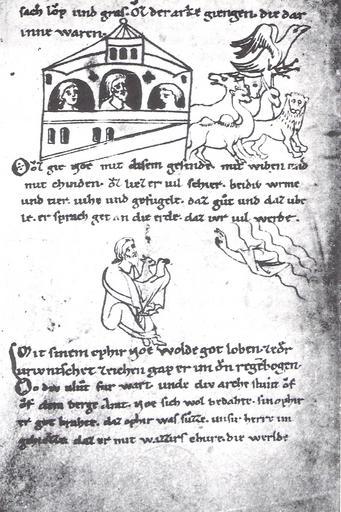 sach lo̊p und gras. Ůz der arke giengen. die dar
inne waren.
gie Noe mit disem gesinde. mit wiben und
mit chinden. Ůz liez er vil schier. beidiv wrme
und tier. vihe und gefugele. daz gůt und daz ube
le. er sprach get an die erde. daz wͦr vil werde.
Mit sinem ophir Noe wolde got loben.
zeichen gap er im den regẽbogen.
Do daz furwart. unde div arche
dem berge. Noe sich wol bedahte. sin ophir
er got brahte. daz ophir was suzze. unsir herre im
daz er mit wazzirs die werlde